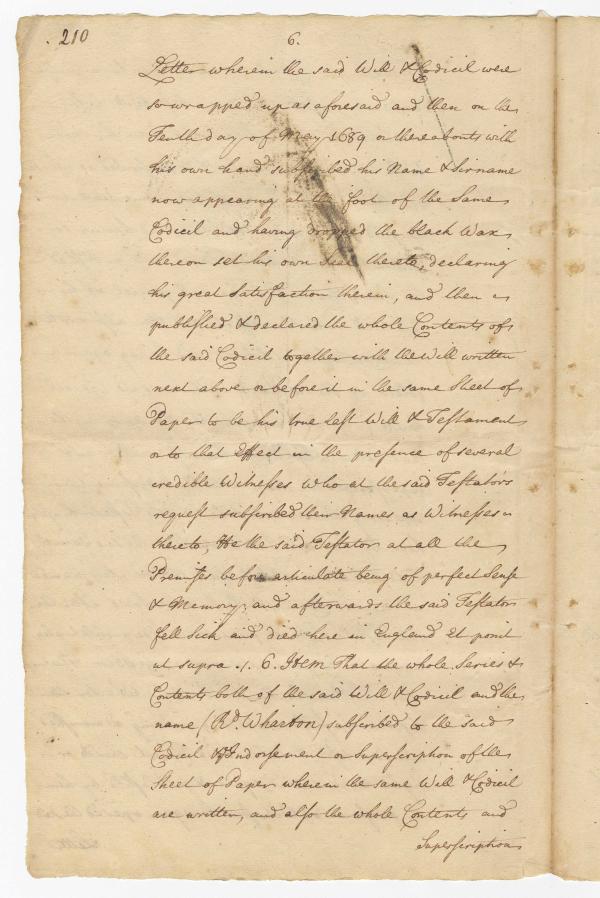 . 210
6.
Letter wherein the said Will & Codicil were
so wrapped up as aforesaid and then on the
Tenth day of May 1689 or thereabouts with
his own hand subscribed his Name & Sirname
now appearing at the foot of the Same
Codicil and having dropped the black Wax
thereon set his own Seal thereto, declaring
his great Satisfaction therein, and then
published & declared the whole Contents of
the said Codicil together with the Will written
next above or before it in the same Sheet of
Paper to be his true last Will & Testament
or to that Effect in the presence of several
credible Witnesses who at the said Testators
request subscribed their Names as Witnesses
thereto, He the said Testator at all the
Premises before articulate being of perfect Sense
& Memory; and afterwards the said Testator
fell Sick and died here in England Et ponit
ut supra ./. 6. Item That the whole Series &
Contents both of the said Will & Codicil and the
name (Rd. Wharton) subscribed to the said
Codicil & Indorsement or Superscription of the
Sheet of Paper wherein the same Will & Codicil
are written, and also the whole Contents and
Superscription